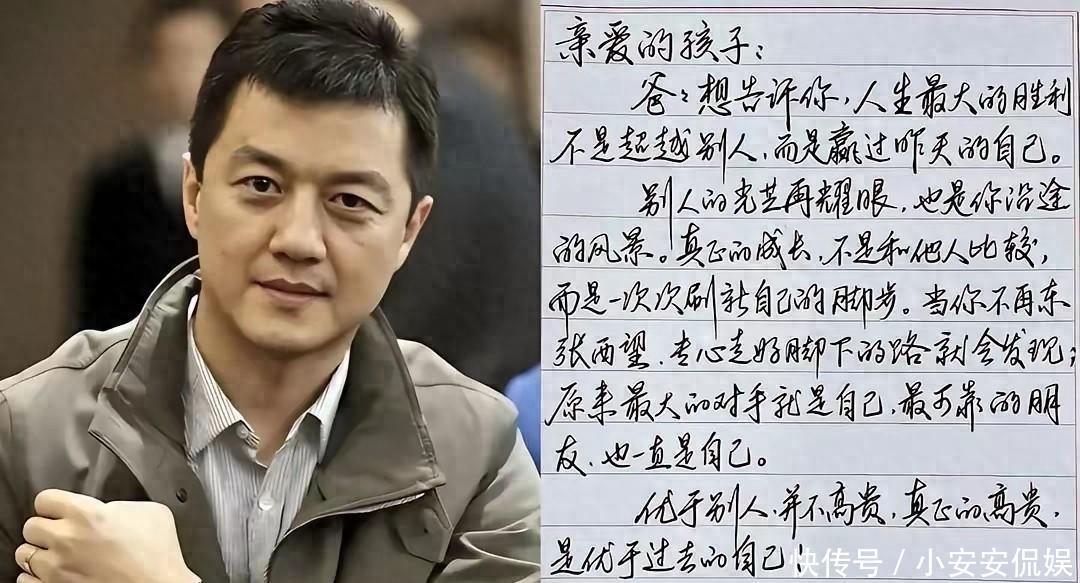 亲爱的孩子：
爸々想告诉你，人生最大的胜利
不是超越别人，而是赢过昨天的自己。
别人的光芒再耀眼，也是你沿途
的风景。真正的成长，不是和他人比较，
而是一次次刷新自己的脚步。当你不再东
张西望、专心走好脚下的路就会发现；
原来最大的对手就是自己，最可靠的朋
友，也一直是自己。
优于别人，并不高贵，真正的高贵，
是优于过去的自己！
快传号 / 小安安侃娱